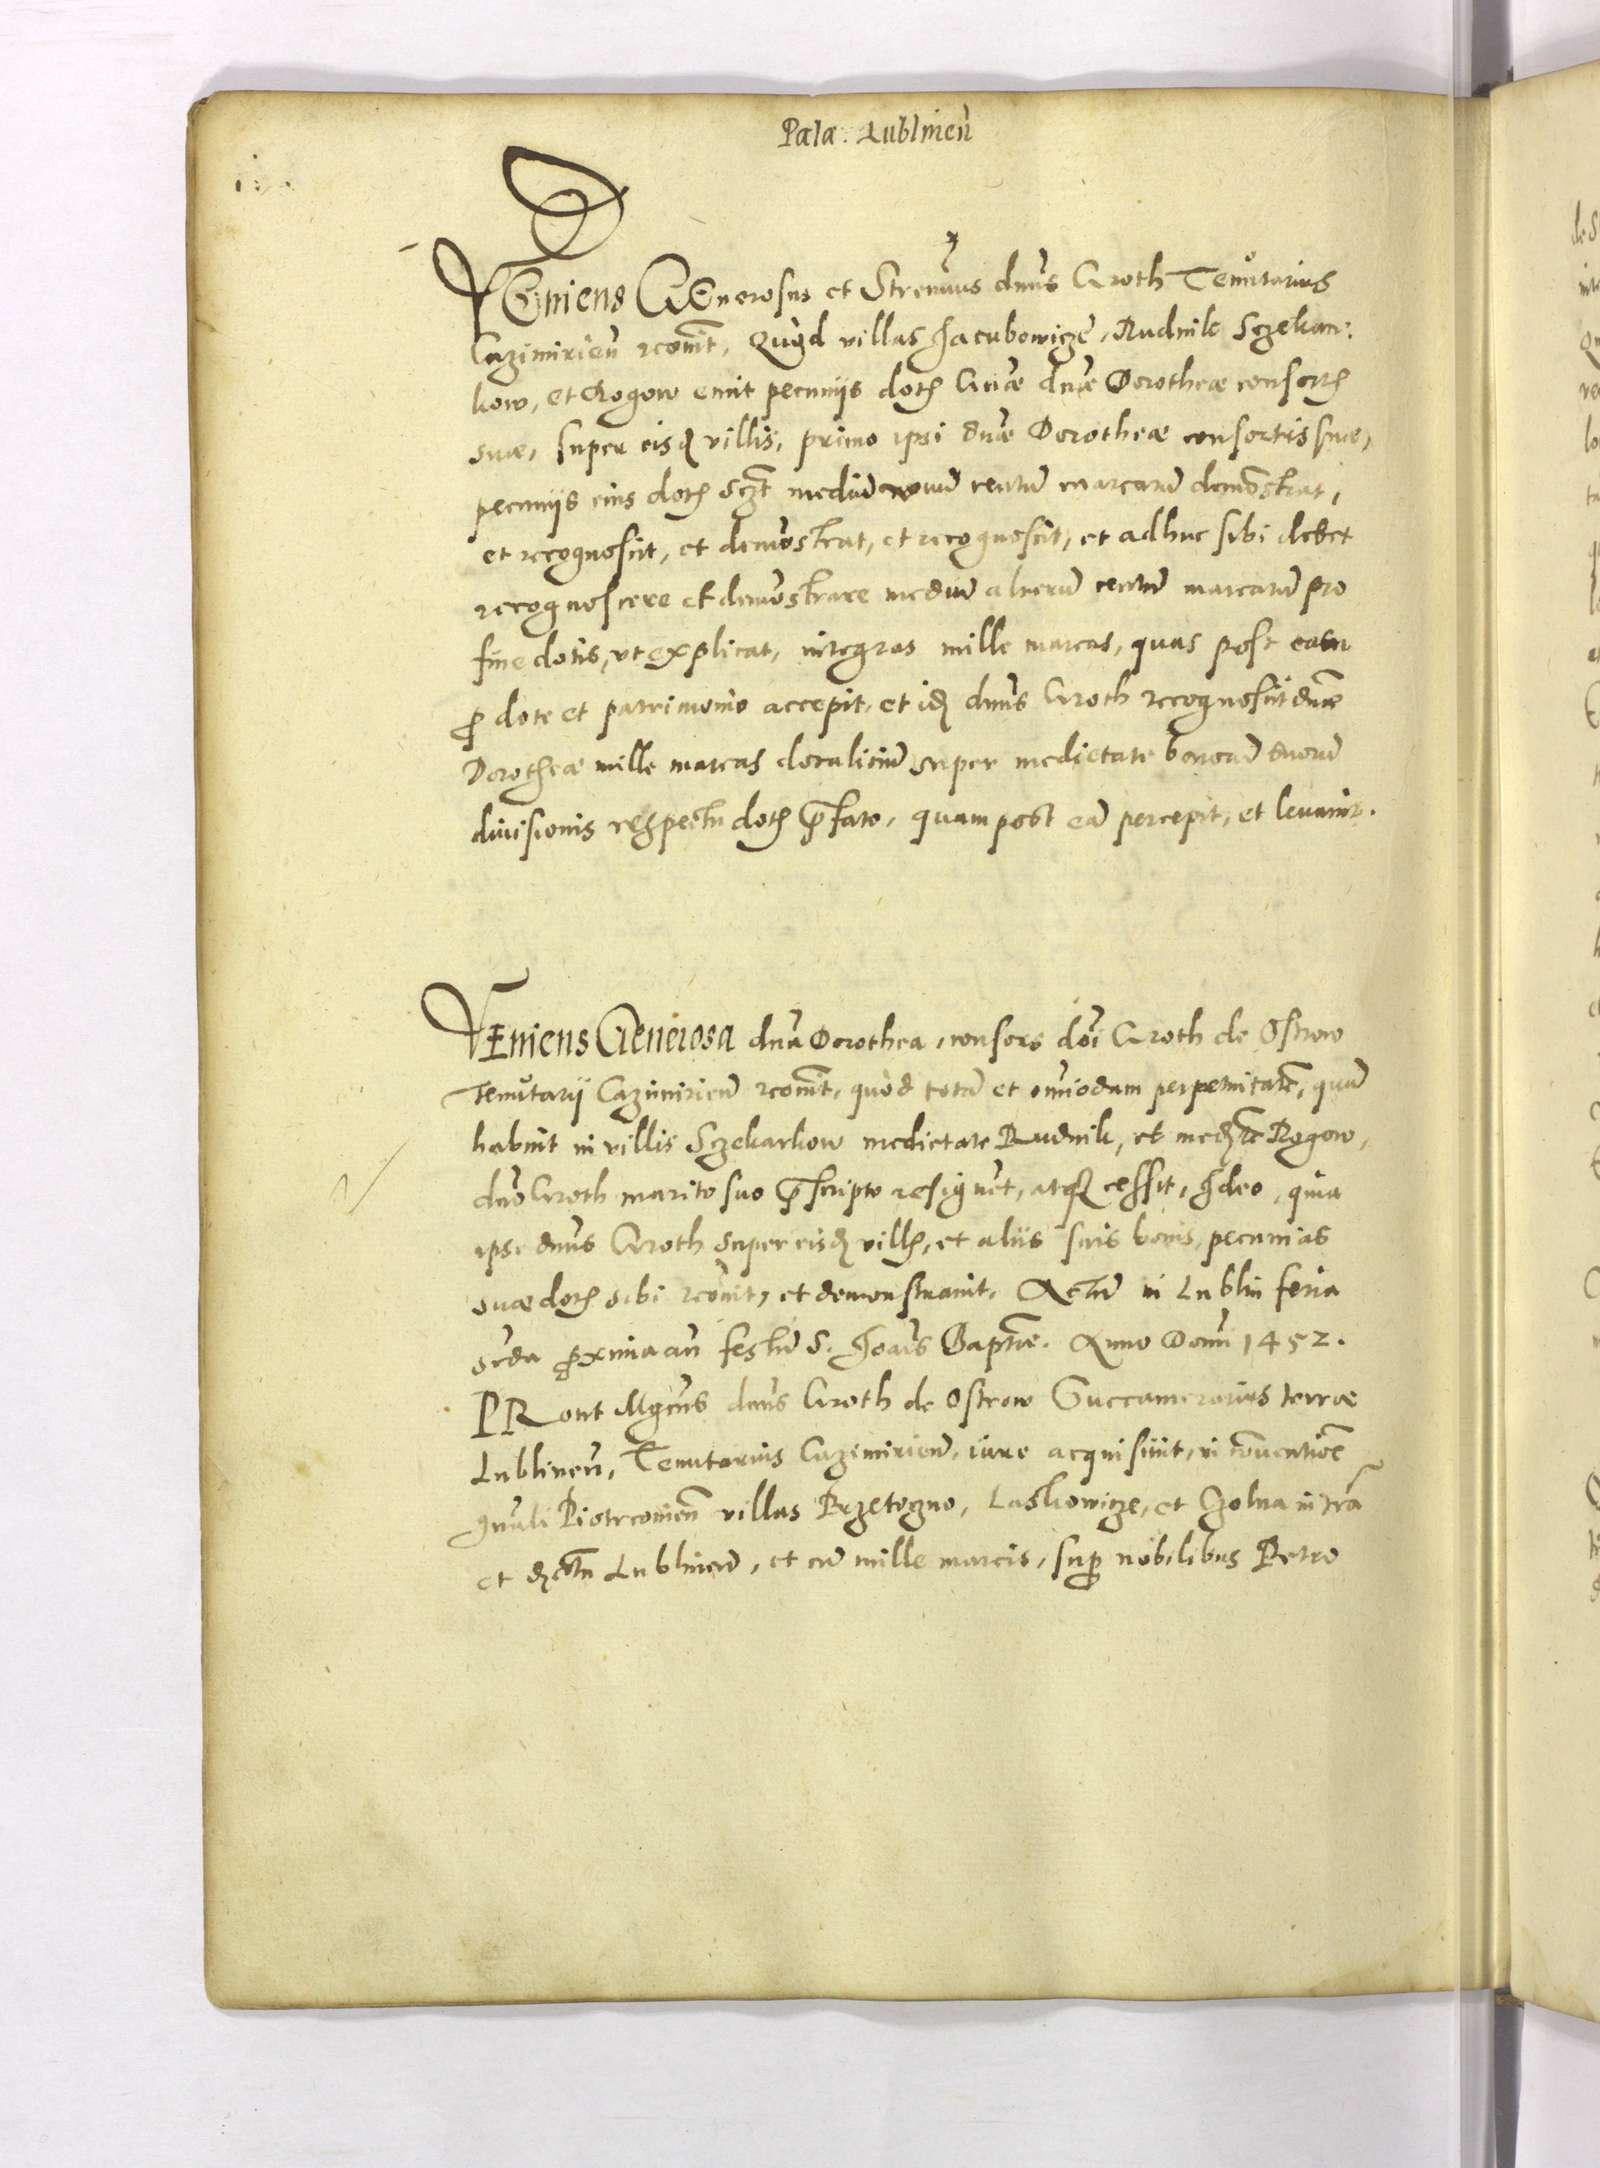 Pala. Lublineñ
VEniens GEnerosus et Strenuus dnũs Groth Tenutarius
Cazimirieñ rcoñit, Quòd villas Jacubowicze, Rudnik Sczekar:
kow, et Rogow emit pecunijs doth dnæ Dorotheæ consorth
suæ, super eisd villis, primo ipsi dnæ Dorotheæ consortis suæ,
pecunijs eius doth sczt mediũ centũ marcarũ demõstrat,
et recognoscit, et demõstrat, et recognoscit, et adhuc sibi debet
recognoscere et demõstrare mediũ alterũ centũ marcarũ pro
fine dotis, vt explicat, integras mille marcas, quas post eam
p dote et patrimonio accepit, et idẽ dnũs Groth recognoscit dnæ
Dorotheæ mille marcas dotalicium super medietate bonorũ suorũ
divisionis respectu doth p̃fato, quam post eã percepit, et levavit.
VEniens Generosa dnã Dorothea, consors dnĩ Groth de Ostrow
Tenutarij Cazimirieñ rcoñit, quòd totã et omniodam perpetuitatẽ, quã
habuit in villis Sczekarkow medietate Rudnik, et medtẽ Rogow,
dnõ Groth marito suo p̃scripto resignvit, atq cessit, Ideo, quia
ipse dnũs Groth super eisd villh, et aliis suis bonis, pecunias
suæ doth sibi rcoñit, et demonstravit. Actũ in Lublin feria
scda pxima añ festũ S. Joañis Baptæ. Anno Domi 1452.
PRout Mgcũs dnũs Groth de Ostrow Succamerarius terræ
Lublineñ, Tenutarius Cazimirieñ, iure acquisiuit, in conventiõe
gnali Piotrcovieñ villas Brzetogno, Laskowicze, et Czolna in trã
et dctu Lublineñ, et cũ mille marcis, sup nobilibus Petro